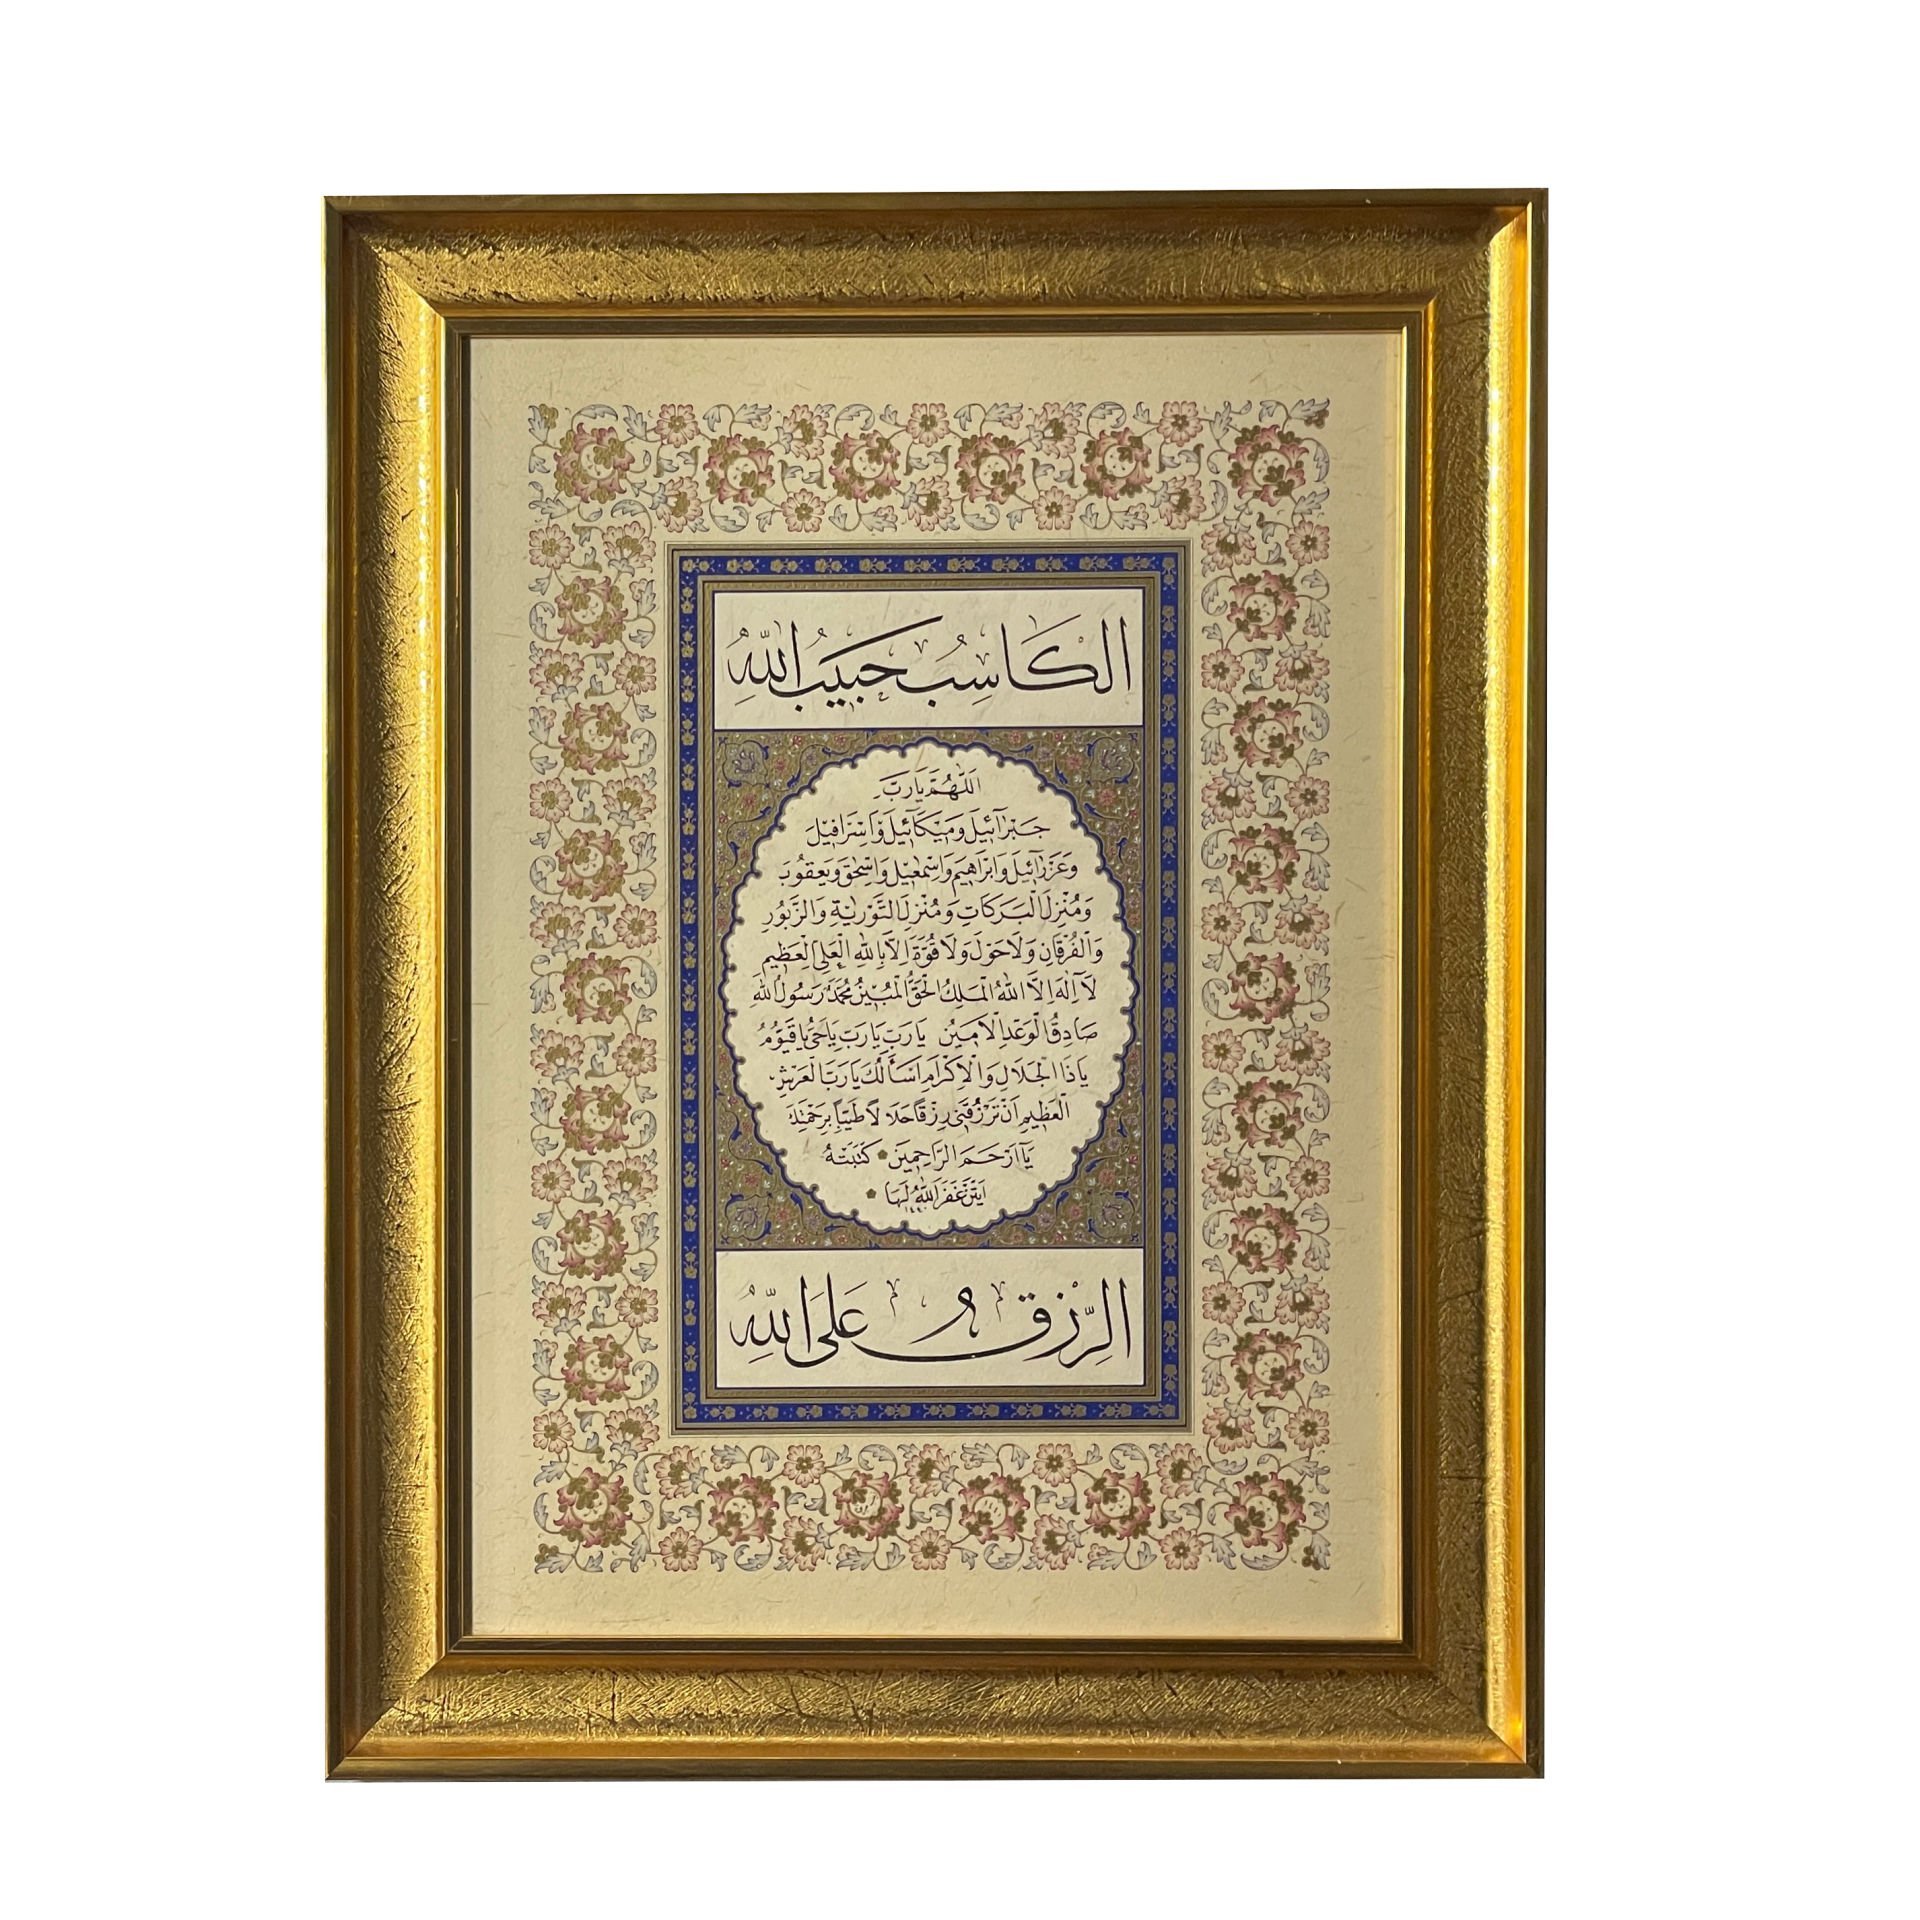 الكَاسِبُ حَبِيبُ اللهِ
اَللّٰهُمَّ يَا رَبَّ
جَبْرَآئِيلَ وَمِيْكَآئِيلَ وَاِسْرَافِيْلَ
وَعَزْرَآئِيلَ وَاِبْرَاهِيمَ وَاِسْمٰعِيْلَ وَاِسْحٰقَ وَيَعْقُوبَ
وَمُنْزِلَ الْبَرَكَاتِ وَمُنْزِلَ التَّوْرٰيةِ وَالزَّبُورِ
وَالْفُرْقَانِ وَلَا حَوْلَ وَلَا قُوَّةَ اِلَّا بِاللهِ الْعَلِىِّ الْعَظِيمِ
لَآ اِلٰهَ اِلَّا اللهُ الْمَلِكُ الْحَقُّ الْمُبِينُ مُحَمَّدٌ رَسُولُ اللهِ
صَادِقُ الْوَعْدِ الْاَمِينُ يَا رَبِّ يَا رَبِّ يَا حَىُّ يَا قَيُّومُ
يَا ذَا الْجَلَالِ وَالْاِكْرَامِ اَسْأَلُكَ يَا رَبَّ الْعَرْشِ
الْعَظِيمِ اَنْ تَرْزُقَنِى رِزْقًا حَلَالًا طَيِّبًا بِرَحْمَتِكَ
يَآ اَرْحَمَ الرَّاحِمِينَ كَتَبَتْهُ
غَفَرَ اللهُ لَهَا
الرِّزْقُ عَلَى اللهِ